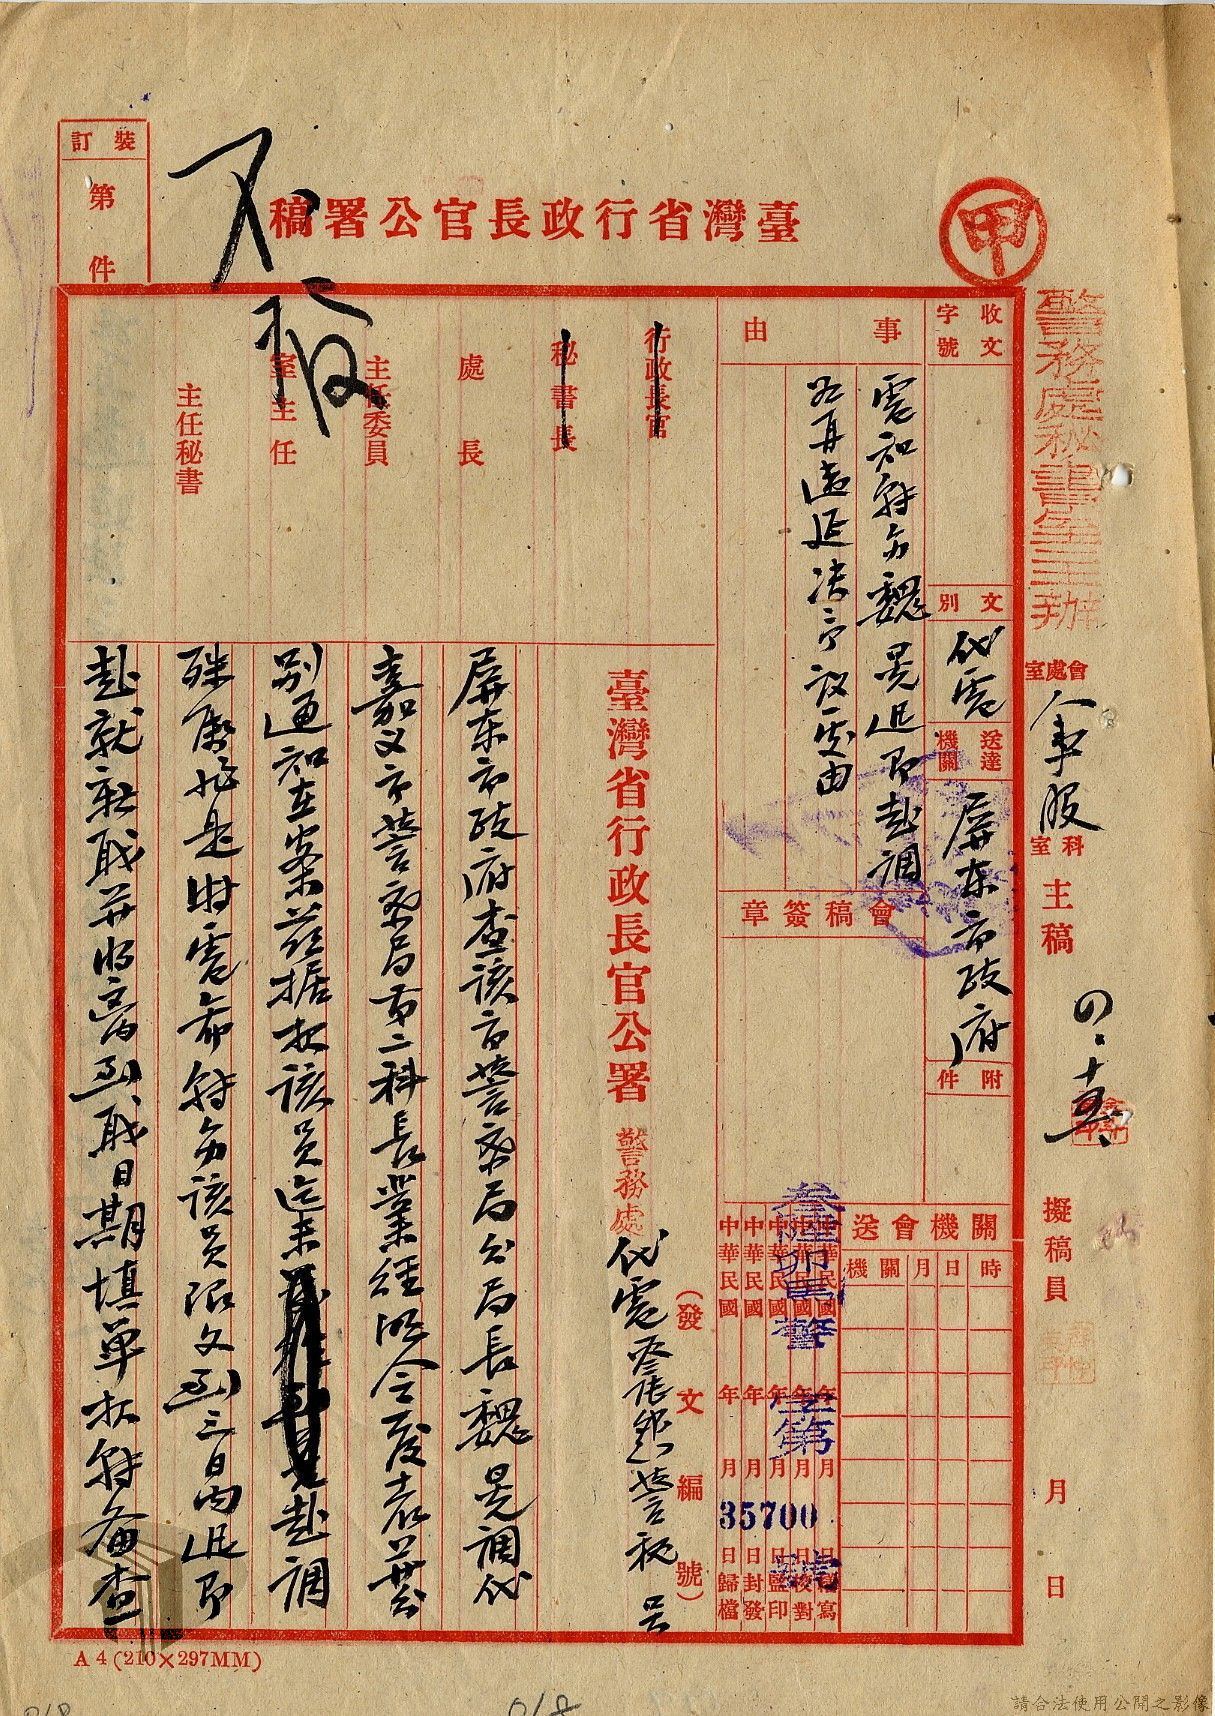 臺灣省行政長官公署稿
甲
裝訂
第
件
不發
警務處秘書室主辦
會處室
人事股
科室
主稿
四·十五
擬稿員
月
日
收文
字號
文別
代電
送達
機關
屏東市政府
附件
事由
電知轉飭魏晃迅即赴調
勿再違延决予議處由
會稿簽章
行政長官
秘書長
處長
主任委員
室主任
主任秘書
關機會送
時日月關機
中華民國年月日繕寫
中華民國年月日校對
中華民國年月日監印
中華民國年月日封發
中華民國年月日歸檔
叁陸卯
警
字第
35700
號
(發文編號)
臺灣省行政長官公署
警務處
代電
警秘
號
屏東市政府查該市警察局分局長魏晃調代
嘉义市警察局第二科長業經明令發表並分
別通知在案茲据报該員迄未
赴調
殊屬非是附電希转飭該員限文到三日內迅即
赴就新职并將离到职日期填单报转备查
A4(210×297MM)
018
請合法使用公開之影像